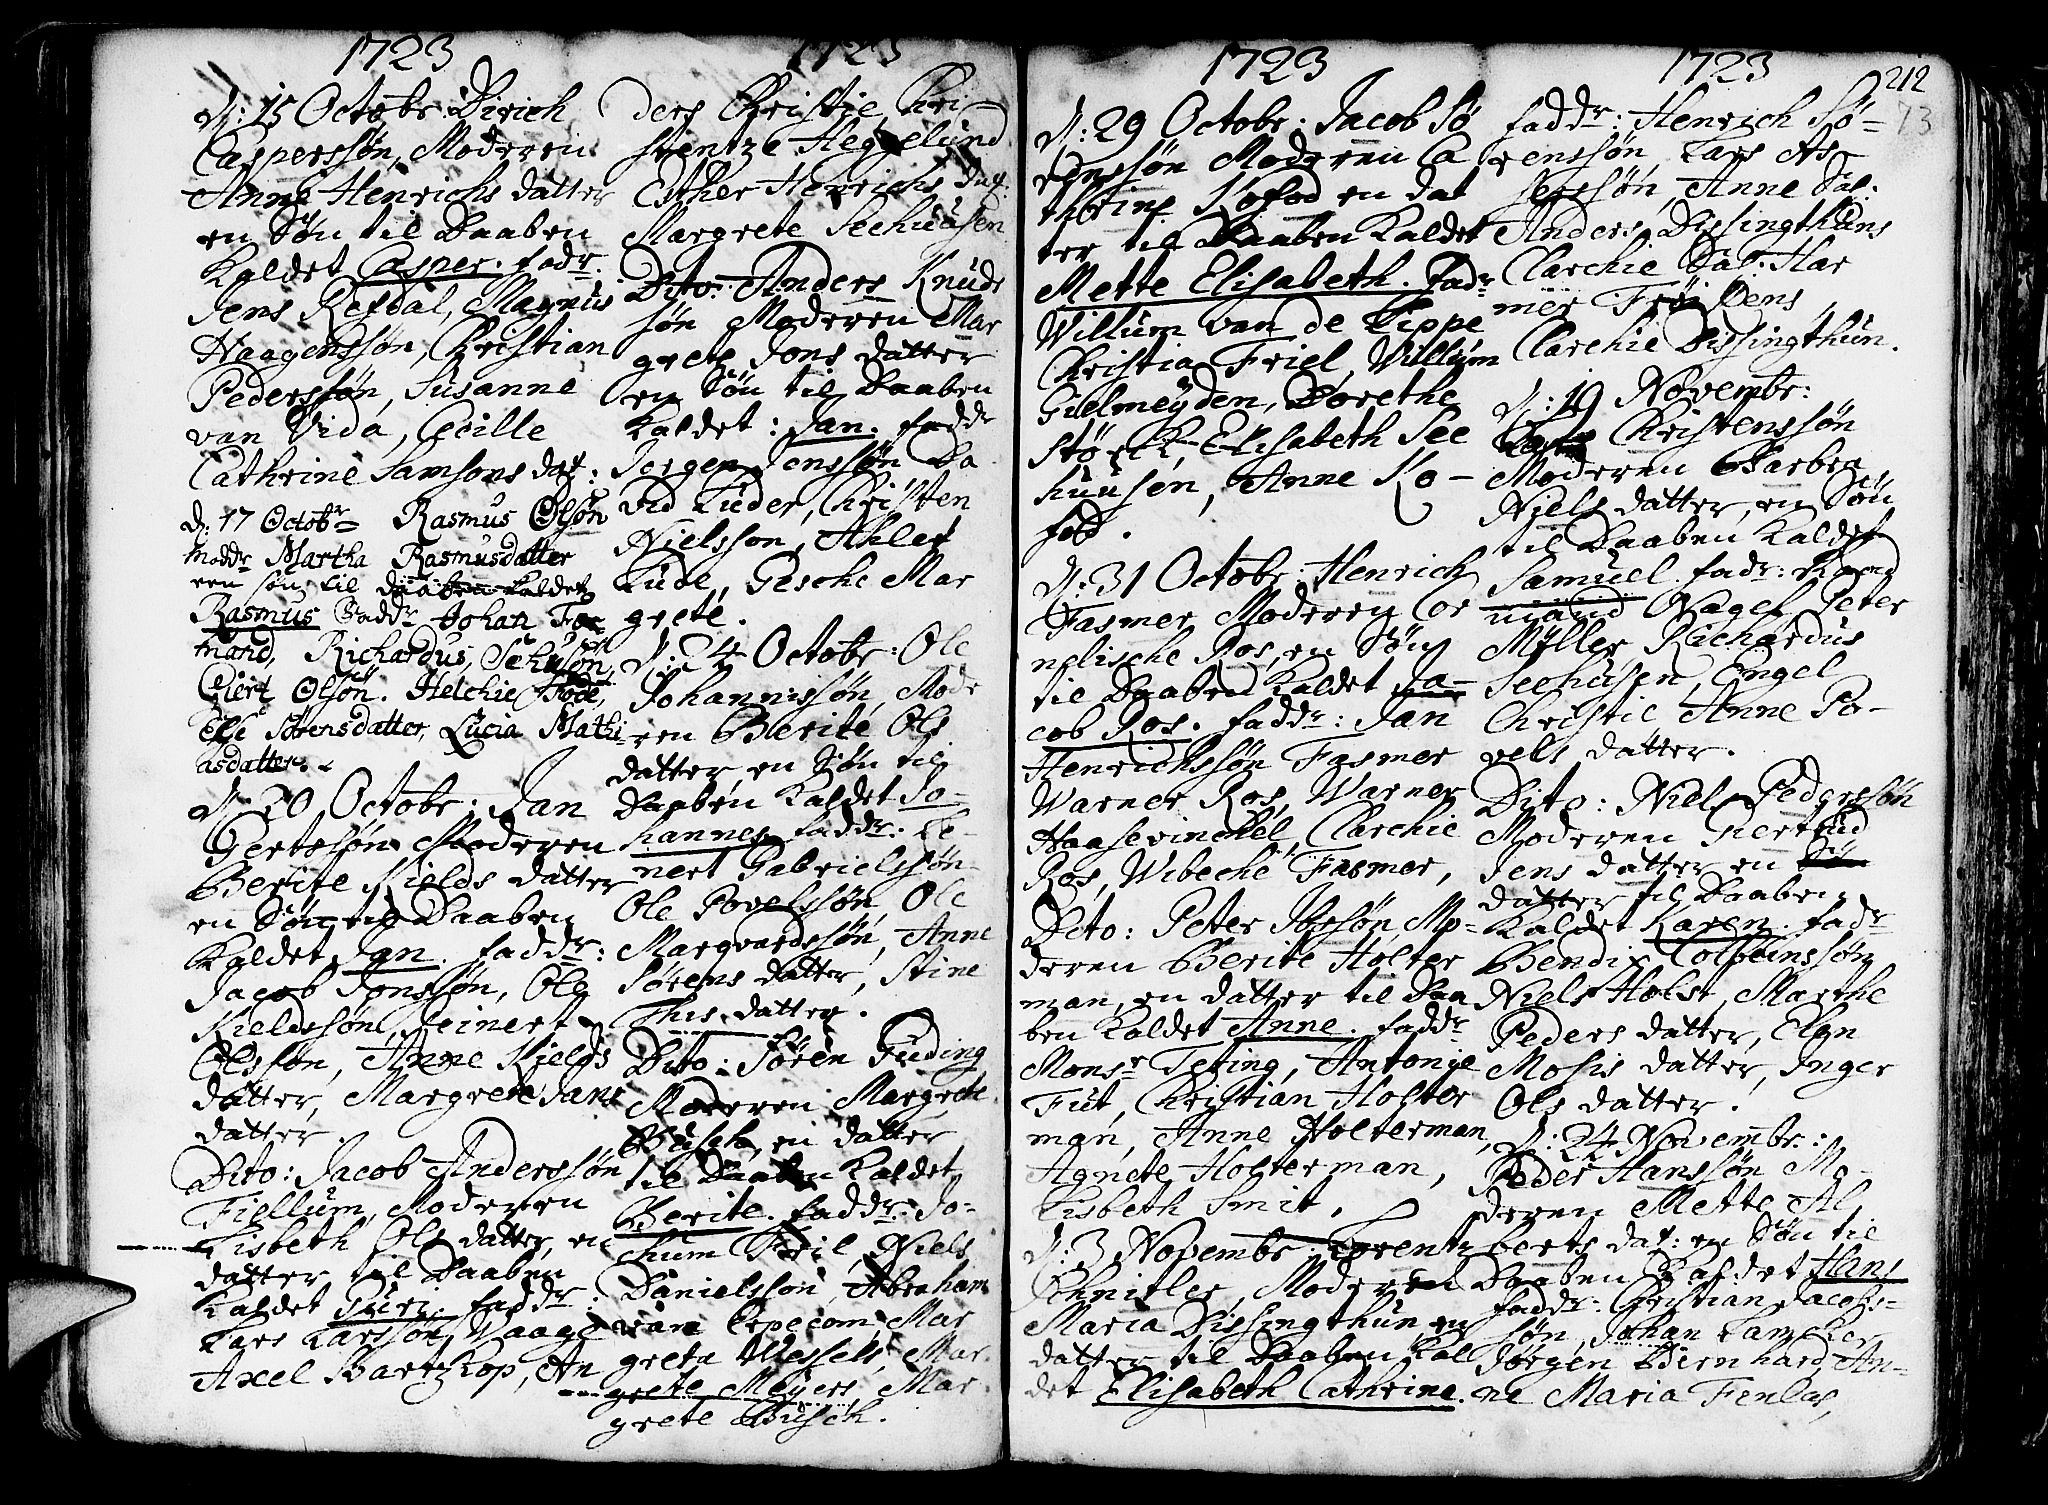 1723
d: 15 Octobr: Dirich
Casperssøn, Moderen
Anne Henrichs datter
en Søn til Daaben
Kaldet Casper. fadr.
Jens Refdal, Magnus
Haagenssøn, Christian
Pederssøn, Susanne
van Vida, Cecille
Cathrine Samsons dat:
d: 17 Octobr Rasmus Olsøn
Modr Martha Rasmusdatter
een søn til daaben kaldet
Rasmus Faddr Johan For
mand, Richardus, Sehusen
Giert Olsøn. Helchie Fode,
Else Sørensdatter, Lucia Mathi
asdatter.
d: 20 Octobr: Jan
Gertssøn Moderen
Berite Kields datter
en Søn til Daaben
Kaldet Jan. faddr:
Jacob Jonssøn, Ole
Kieldssøn, Reinert
Olsson, Anne Kields
datter, Margrete Jans
datter.
Dito: Jacob Anderssøn
Fiellum, Moderen
Lisbeth Ols datter, en
datter til Daaben
Kaldet Siri. faddr:
Lars Larssøn Waage
Axel Bartzkop, An
1723
ders Christie, Chri-
stentze Heggelund
Esther Henrichs dat:
Margrete Seehuusen
Dito: Anders Knuds
søn Moderen Mar
grete Jons datter
en Søn til Daaben
Kaldet: Jan. faddr
Jørgen Jenssøn, Da
vid Luder, Christen
Nielsson, Ahlet
Lude, Gesche Mar
grete.
d: 24 Octobr: Ole
Johannissøn, Mode
ren Berite Ols
datter, en Søn til
Daaben Kaldet Jo-
hannes. faddr: Le-
nert Gabrielssøn
Ole Povelssøn, Ole
Marqvardssøn, Anne
Sørens datter, Stine
This datter.
Dito: Søren Guding
Moderen Margrete
Busch, en datter
til Daaben Kaldet
Berite. faddr: Jo-
chum Friil, Niels
Danielsson, Abraham
van Erpecom, Mar
greta Wessels, Mar-
grete Meyers, Mar-
grete Busch.
1723
d: 29 Octobr: Jacob Sø
renssøn Moderen Ca
thrine Kofod en dat
ter til Daaben Kaldet
Mette Elisabeth. fadr
Willum van de Lippe
Christia Friel, Willum
Gielmeyden, Dorethe
Størck, Elisabeth See
huusen, Anne Ko-
fod.
d: 31 Octobr: Henrich
Fasmer Moderen Cor
nelische Ros, en Søn
til Daaben Kaldet Ja-
cob Ros. faddr: Jan
Henrichssøn Fasmer
Warner Ros, Warner
Haasevinckel, Clarchie
Ros, Wibeche Fasmer,
Dito: Peter Ibsøn Mo-
deren Berite Holter
man, en datter til Daa
ben Kaldet Anne. faddr
Monsr Teting, Antonie
Fut, Christian Holter
man, Anne Holterman,
Agnete Holterman,
Lisbeth Smit,
d: 3 Novembr: Lorentz
Schnitler, Moderen
Maria Dissingthun, en
datter til Daaben Kal
det Elisabeth Cathrine.
1723
212
73
faddr: Henrich Sø-
renssøn, Lars As-
serssøn, Anne Sal:
Anders Dissingthuns
Clarchie Sal: Har
mer Frøi Dens
Clarchie Dissingthun.
d: 19 Novembr:
Christenssøn
Moderen Barbra
Niels datter, en Søn
til Daaben Kaldet
Samuel. fadr: Raad
mand Nagel, Peter
Møller Richardus
Seehusen, Engel
Christie Anne Po-
vels datter.
Dito: Niels Pederssøn
Moderen Giertrud
Jens datter en Søn
datter til Daaben
Kaldet Karen. fadr
Bendix Colbeinssøn
Niels Holst, Marthe
Peders datter, Elen
Mosis datter, Inger
Ols datter.
d: 24 Novembr:
Peder Hanssøn Mo-
deren Mette Al
berts dat: en Søn til
Daaben Kaldet Hans
faddr: Christian Jacobs-
søn, Johan Lamcker
Jørgen Bernhard, An-
ne Maria Fenlas,